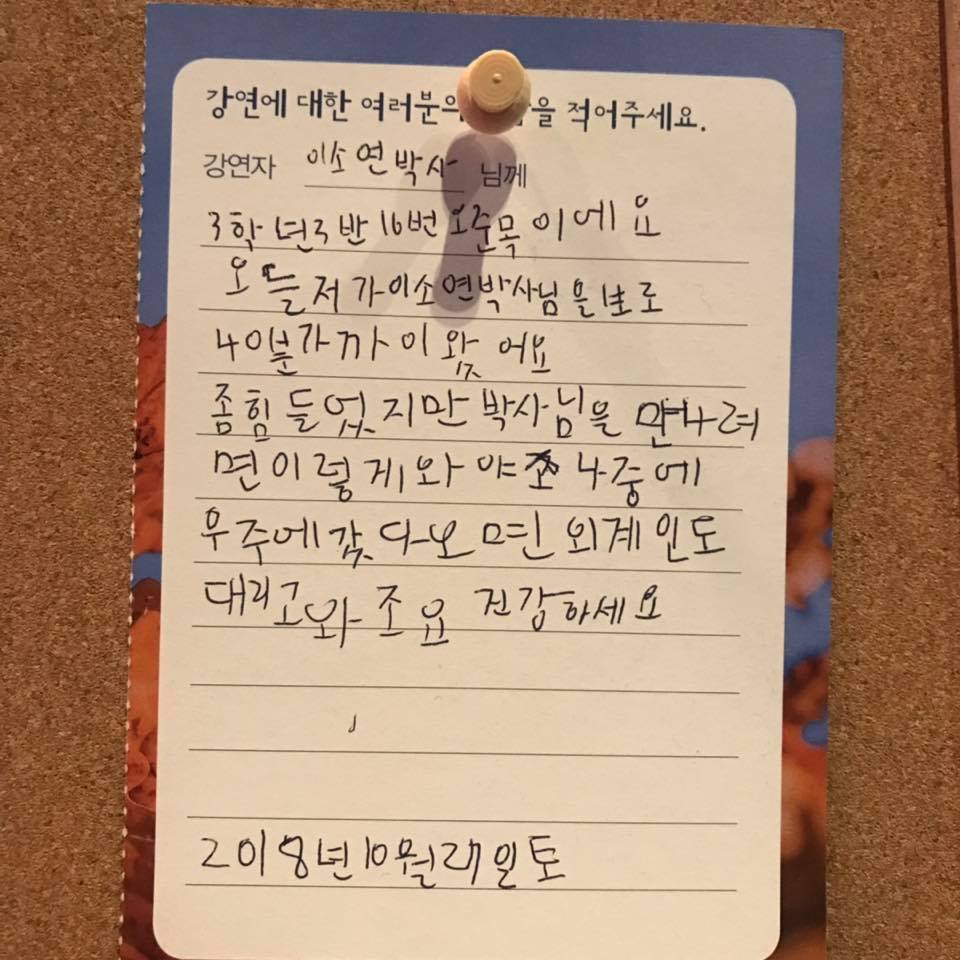 강연에 대한 여러분의 을 적어주세요.
강연자 이소연박사 님께
3학년3반 16번 오준목이에요
오들저가이소연박사님을 보로
40분가까이왔어요
좀힘들었지만 박사님을 만나려
면이렇게와야조 나중에
우주에갔다오면 외계인도
대리고와조요 건강하세요
2018년10월27일토